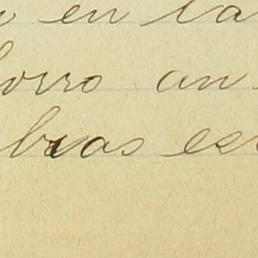 en la
orro an
bras es